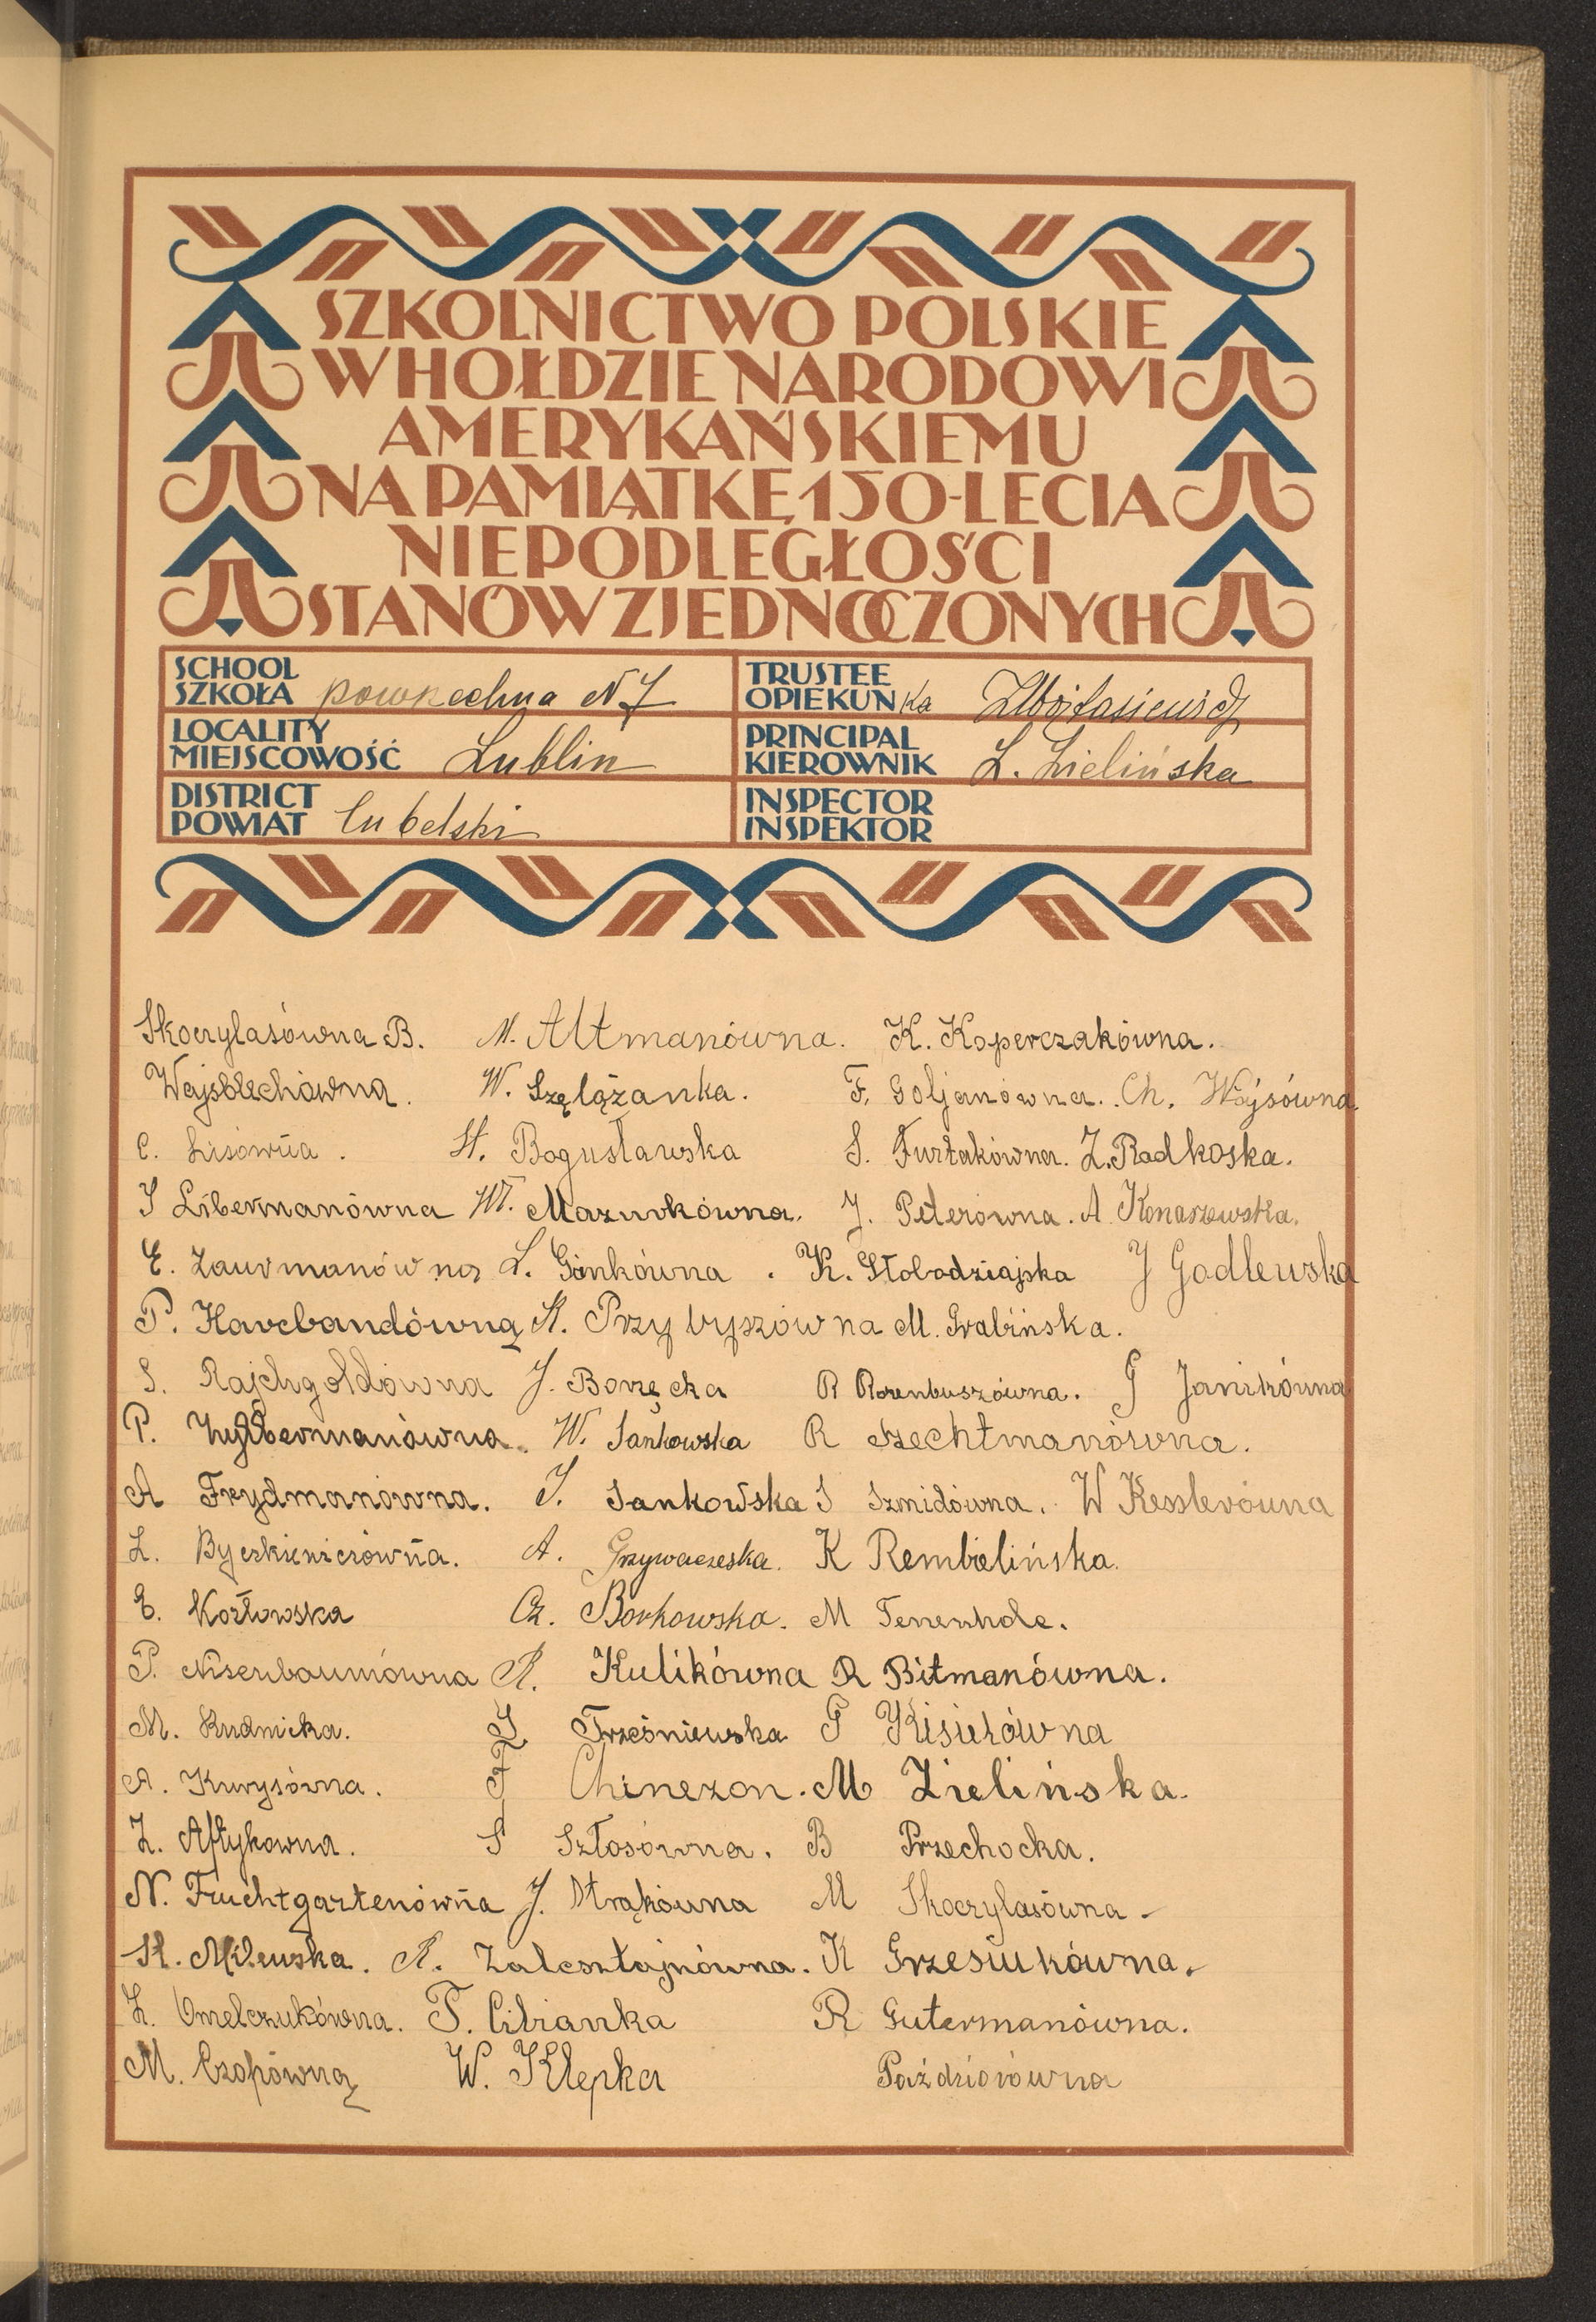 SZKOLNICTWO POLSKIE
W HOŁDZIE NARODOWI
AMERYKAŃSKIEMU
NA PAMIĄTKĘ 150-LECIA
NIEPODLEGŁOŚCI
STANÓW ZJEDNOCZONYCH
SCHOOL
SZKOŁA powszechna N 7
TRUSTEE
OPIEKUNka ZWojtasiewicz
LOCALITY
MIEJSCOWOŚĆ Lublin
PRINCIPAL
KIEROWNIK L. Zielińska
DISTRICT
POWIAT lubelski
INSPECTOR
INSPEKTOR
Skoczylasówna B. M. Altmanówna. K. Koperczakówna.
W. Szelążanka. F. Goljanówna. Ch. Wajsówna
C. Lisówna. St. Bogusławska S. Furtakówna. Z. Radkoska.
S Libermanówna Wł. Mazurkówna. J. Peterówna. A Konaszewska.
E. Zaurmanówna L. Gónkówna. K. Słobodziajska J Godlewska
P. Havebandówna St. Przybyszówna M. Grabińska.
S. Rajchgoldówna J. Borzęcka R Rozenbuszówna. G Janikówna
P. Zylbermanówna. W. Jankowska R Szechtmanówna.
A Frydmanówna. J. Jankowska S Szmidówna. W Kesslerówna
Z. Byczkiewiczówna. A. Grzywaczeska. K Rembielińska.
E. Kozłowska Cz. Borkowska. M Tenenhole.
P. Nisenbaumówna R. Kulikówna R Bitmanówna.
M. Rudnicka. J Trześniewska G Kisielówna
A. Kurysówna. F Chinezon. M Zielińska.
Z. Aftykowna. S Szłosówna. B Przechocka.
N. Fruchtgartenówna J. Strąkówna M Skoczylasówna
St. Milewska. R. Zalcsztajnówna. K Grzesiukówna.
Z. Omelczukówna. T. Cibianka R Gutermanówna.
M. Czopówna W. Klepka Paździorówna